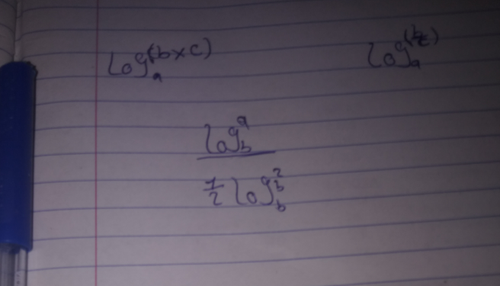 log_a^(b×c) log_a^(b/c)
log_b^a
1/2 log_b^b^2